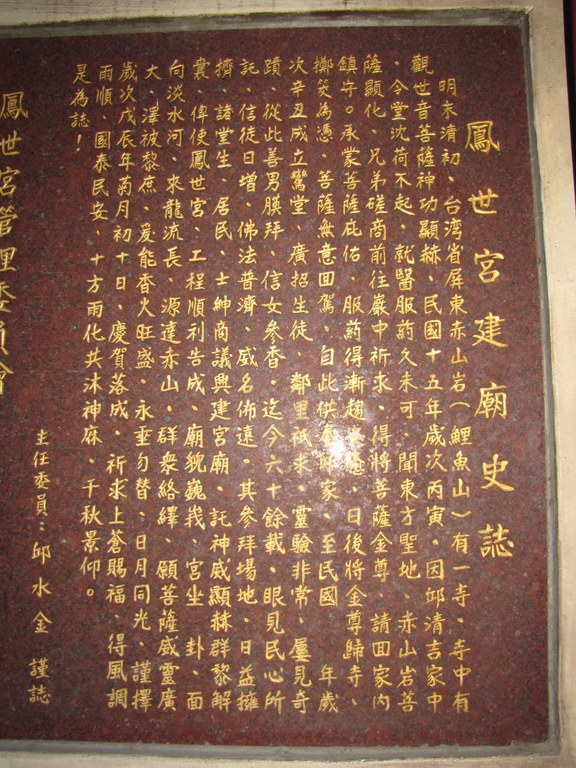 鳳世宮建廟史誌
明末清初、台湾省屏東赤山岩(鯉魚山)有一寺、寺中有
觀世音菩薩神功顯赫、民國十五年歲次丙寅、因邱清吉家中
、令堂沈荷不起、就醫服葯久未可、聞東方聖地、赤山岩菩
薩顯化、兄弟磋商前往巖中祈求、得將菩薩金尊、請回家內
鎮守。承蒙菩薩庇佑、服葯得漸趨 、日後將金尊歸寺、
擲筊為憑、菩薩無意回駕、自此供奉邱家、至民國 年歲
次辛丑成立鸞堂、廣招生徒、鄰里祇求、靈驗非常、屢見奇
蹟、從此善男膜拜、信女參香、迄今六十餘載、眼見民心所
託、信徒日增、佛法普濟、威名佈遠、其參拜場地、日益擁
擠、諸堂生、居民、士紳商議興建宮廟、託神威顯赫群黎解
囊、俾使鳳世宮、工程順利告成、廟貌巍峩、宮坐 卦、面
向淡水河、來龍流長、源達赤山、群衆絡繹、願菩薩威靈廣
大、澤被黎庶、爰能香火旺盛、永垂勿替、日月同光、謹擇
歲次戊辰年菊月初十日、慶賀落成、祈求上蒼賜福、得風調
雨順、國泰民安、十方雨化共沐神庥、千秋景仰。
是為誌!
主任委員:邱水金 謹誌
鳳世宮管理委員會